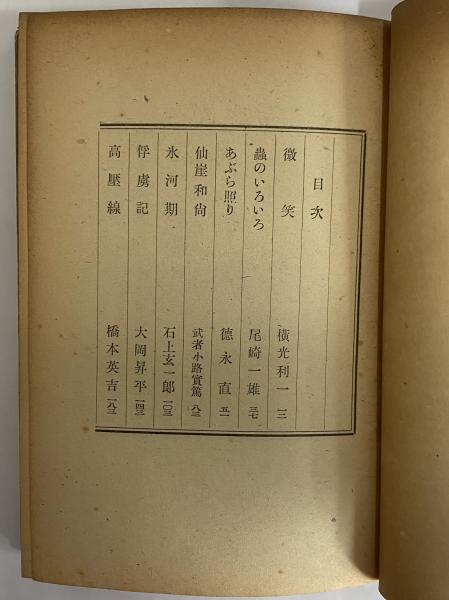 目次
微笑 橫光利一 一三
蟲のいろいろ 尾崎一雄 三七
あぶら照り 德永直 五一
仙崖和尙 武者小路實篤 八三
氷河期 石上玄一郎 一〇三
俘虜記 大岡昇平 一四三
高壓線 橋本英吉 一八三